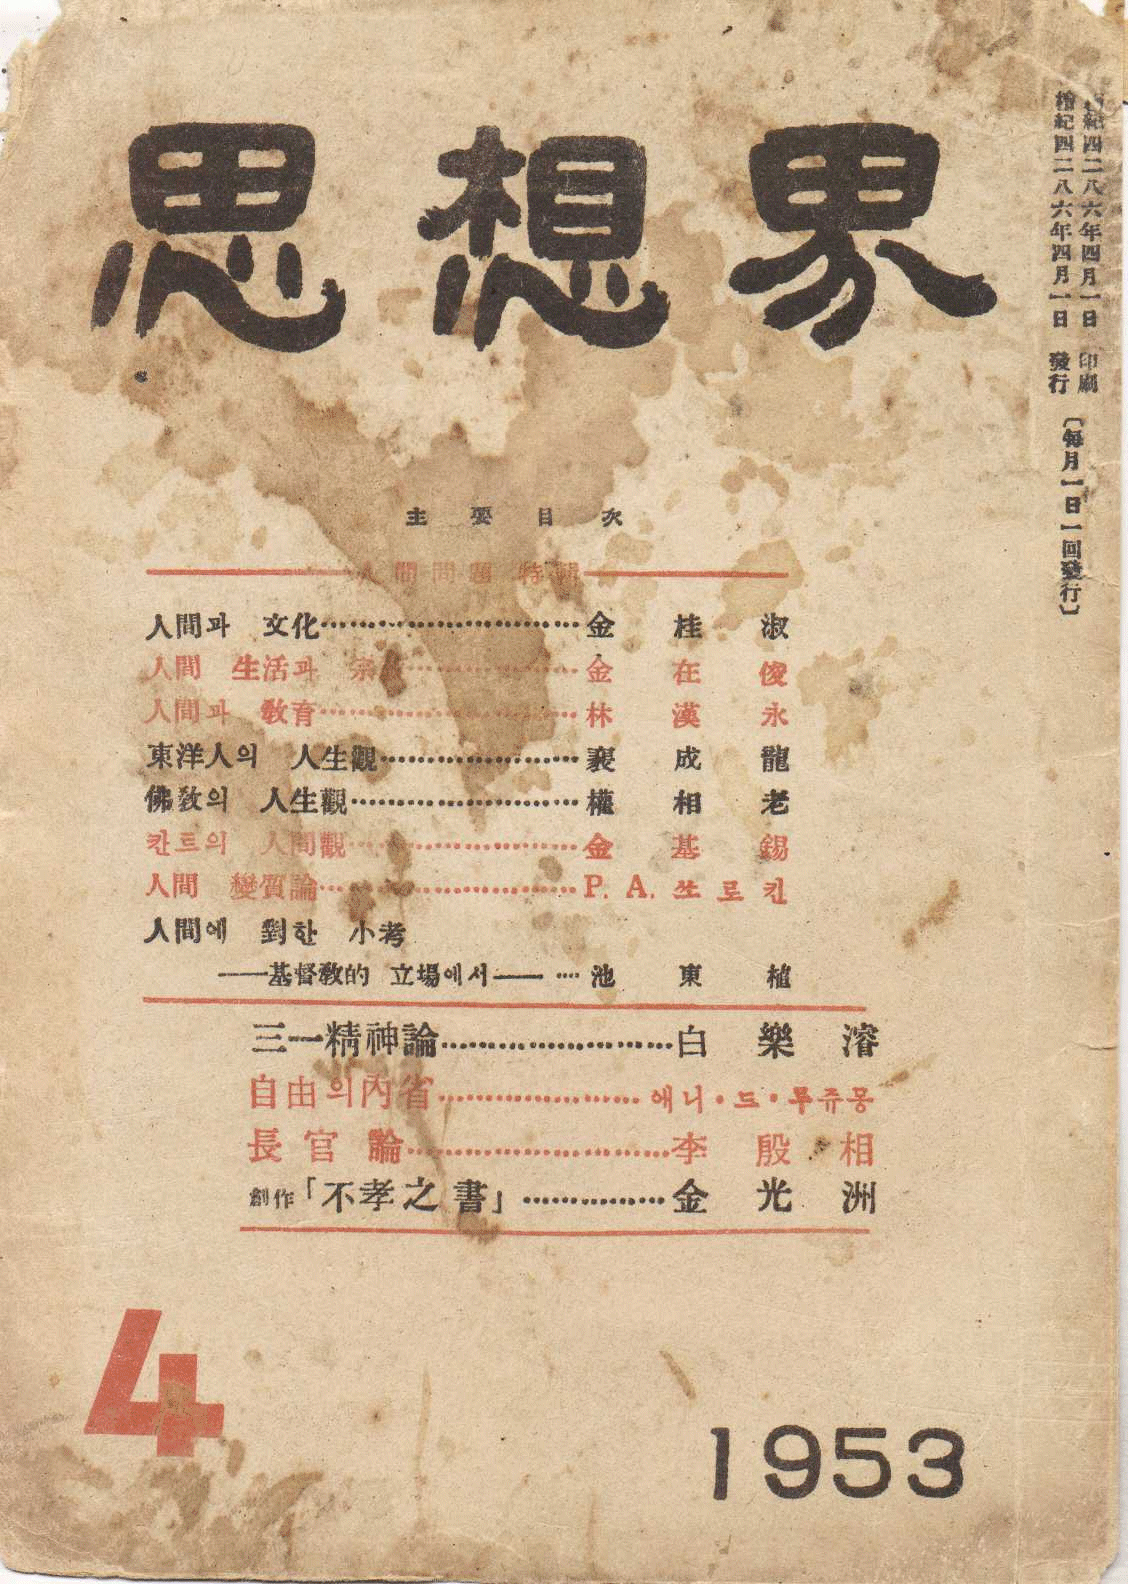 思想界
檀紀四二八六年四月一日 印刷
檀紀四二八六年四月一日 發行
〔每月一日一回發行〕
主要目次
人間問題 特輯
人間과 文化……………………金桂淑
人間 生活과 宗敎……………………金在俊
人間과 敎育……………………林漢永
東洋人의 人生觀……………………裵成龍
佛敎의 人生觀……………………權相老
칸트의 人間觀……………………金基錫
人間 變質論……………………P. A. 쏘로킨
人間에 對한 小考
——基督敎的 立場에서—— …池東植
三一精神論……………………白樂濬
自由의內省……………………애니·드·루쥬몽
長官論……………………李殷相
創作「不孝之書」……………金光洲
4
1953